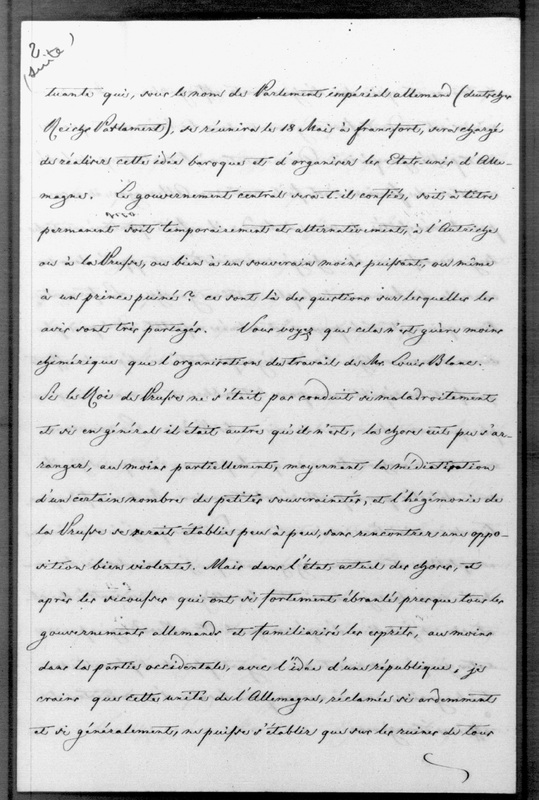 2
(suite)
tuante qui, sous le nom de Parlement impérial allemand (deutsches
Reichs Parlament), se réunira le 18 Mai à francfort, sera chargé
de réaliser cette idée baroque et d'organiser les Etats-unis d'Alle-
magne. Le gouvernement central sera-t-il confié, soit à titre
permanent soit temporairement et alternativement, à l'Autriche
ou à la Prusse, ou bien à un souverain moins puissant, ou même
à un prince puiné? ce sont là des questions sur lesquelles les
avis sont très partagés. Vous voyez que cela n'est guère moins
chimérique que l'organisation du travail de Mr. Louis Blanc.
Si le Roi de Prusse ne s'était pas conduit si maladroitement
et si en général il était autre qu'il n'est, la chose eut pu s'ar-
ranger, au moins partiellement, moyennant la médiatisation
d'un certain nombre de petites souverainetés, et l'hégémonie de
la Prusse se serait établie peu à peu, sans rencontrer une oppo-
sition bien violente. Mais dans l'état actuel des choses, et
après les secousses qui ont si fortement ébranlé presque tous les
gouvernements allemands et familiarisé les esprits, au moins
dans la partie occidentale, avec l'idée d'une république, je
crains que cette unité de l'Allemagne, réclamée si ardemment
et si généralement, ne puisse s'établir que sur les ruines de tous